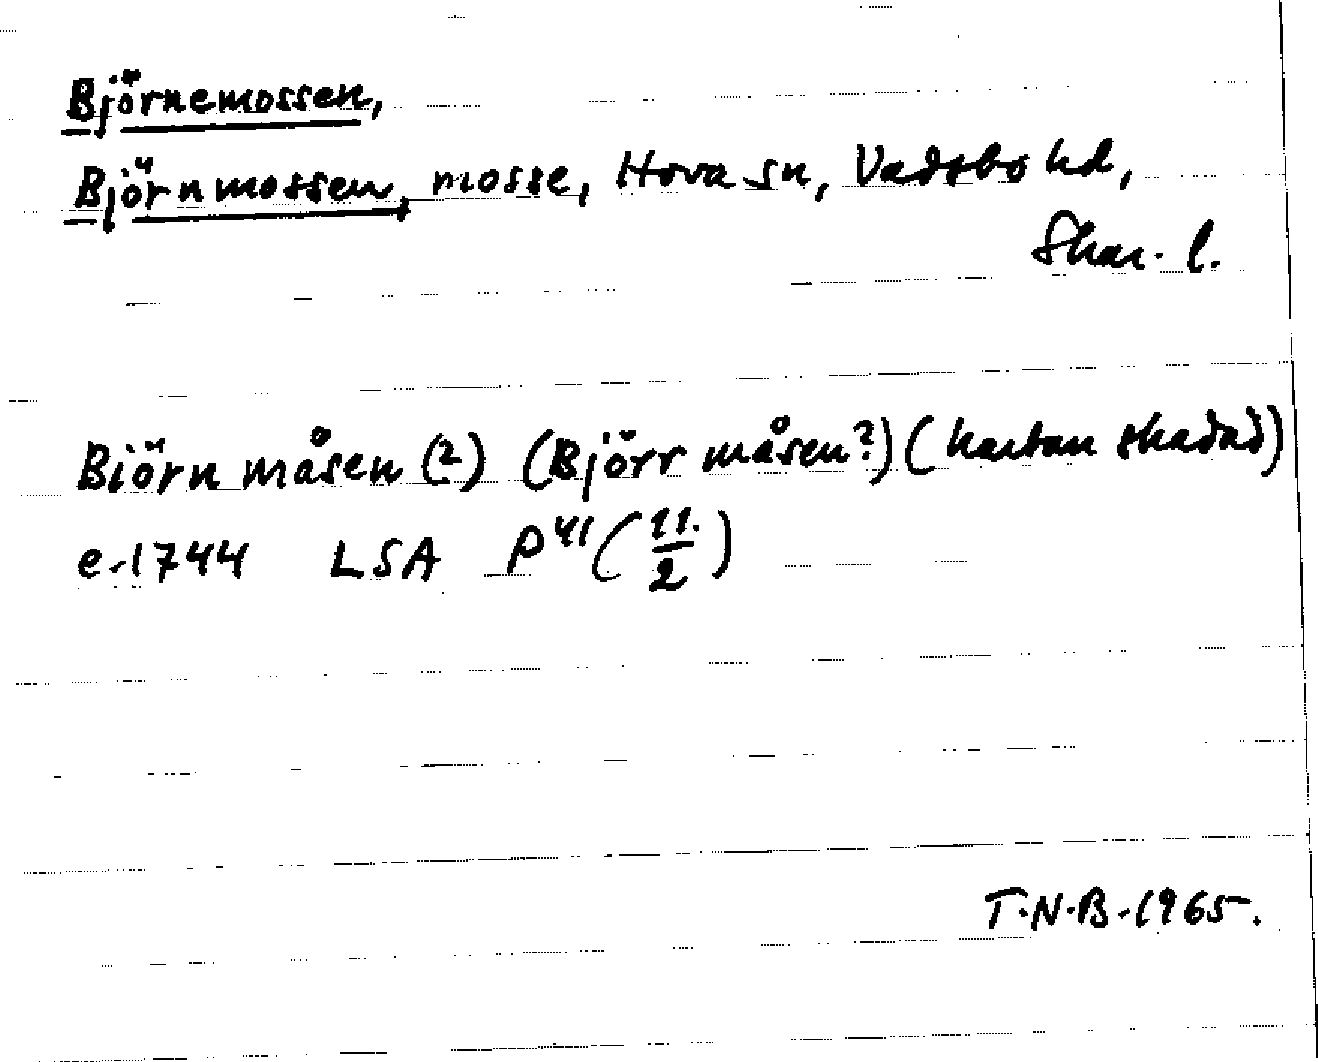 Björnemossen,
Björnmossen, mosse, Hova sn, Vadsbo hd,
Skar. l.
Biörn måsen (2) (Björr måsen?) (kartan skadad)
e. 1744 LSA P 41 (11./2)
T.N.B. 1965.